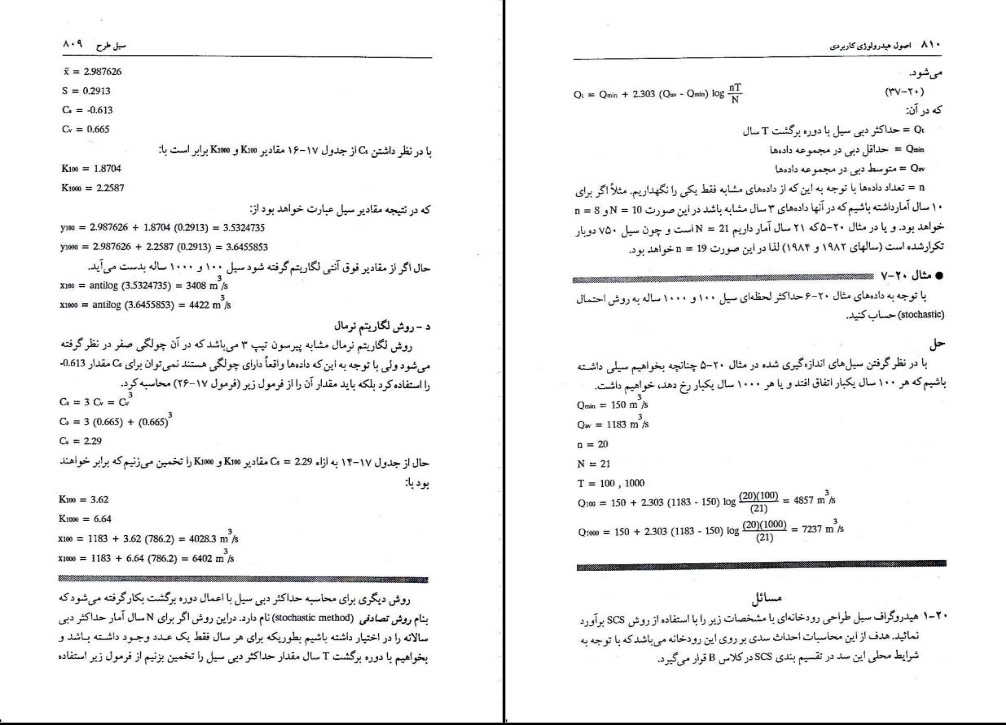 سیل طرح ۸۰۹
x̄ = 2.987626
S = 0.2913
Cs = -0.613
Cv = 0.665
با در نظر داشتن Cs از جدول ۱۷-۱۶ مقادیر K100 و K1000 برابر است با:
K100 = 1.8704
K1000 = 2.2587
که در نتیجه مقادیر سیل عبارت خواهد بود از:
y100 = 2.987626 + 1.8704 (0.2913) = 3.5324735
y1000 = 2.987626 + 2.2587 (0.2913) = 3.6455853
حال اگر از مقادیر فوق آنتی لگاریتم گرفته شود سیل ۱۰۰ و ۱۰۰۰ ساله بدست می‌آید.
x100 = antilog (3.5324735) = 3408 m³/s
x1000 = antilog (3.6455853) = 4422 m³/s
د - روش لگاریتم نرمال
روش لگاریتم نرمال مشابه پیرسون تیپ ۳ می‌باشد که در آن چولگی صفر در نظر گرفته
می‌شود ولی با توجه به این که داده‌ها واقعاً دارای چولگی هستند نمی‌توان برای Cs مقدار 0.613-
را استفاده کرد بلکه باید مقدار آن را از فرمول زیر (فرمول ۱۷-۲۶) محاسبه کرد.
Cs = 3 Cv = Cv³
Cs = 3 (0.665) + (0.665)³
Cs = 2.29
حال از جدول ۱۷-۱۴ به ازاء Cs = 2.29 مقادیر K100 و K1000 را تخمین می‌زنیم که برابر خواهند
بود با:
K100 = 3.62
K1000 = 6.64
x100 = 1183 + 3.62 (786.2) = 4028.3 m³/s
x1000 = 1183 + 6.64 (786.2) = 6402 m³/s
روش دیگری برای محاسبه حداکثر دبی سیل با اعمال دوره برگشت بکار گرفته می‌شود که
بنام روش تصادفی (stochastic method) نام دارد. دراین روش اگر برای N سال آمار حداکثر دبی
سالانه را در اختیار داشته باشیم بطوریکه برای هر سال فقط یک عدد وجود داشته باشد و
بخواهیم با دوره برگشت T سال مقدار حداکثر دبی سیل را تخمین بزنیم از فرمول زیر استفاده
۸۱۰ اصول هیدرولوژی کاربردی
می‌شود.
Qt = Qmin + 2.303 (Qav - Qmin) log nT/N (۲۰-۳۷)
که در آن:
Qt = حداکثر دبی سیل با دوره برگشت T سال
Qmin = حداقل دبی در مجموعه داده‌ها
Qav = متوسط دبی در مجموعه داده‌ها
n = تعداد داده‌ها با توجه به این که از داده‌های مشابه فقط یکی را نگهداریم. مثلاً اگر برای
۱۰ سال آمارداشته باشیم که در آنها داده‌های ۳ سال مشابه باشد در این صورت N = 10 و n = 8
خواهد بود. و یا در مثال ۲۰-۵ که ۲۱ سال آمار داریم N = 21 است و چون سیل ۷۵۰ دوبار
تکرارشده است (سالهای ۱۹۸۲ و ۱۹۸۴) لذا در این صورت n = 19 خواهد بود.
● مثال ۲۰-۷
با توجه به داده‌های مثال ۲۰-۶ حداکثر لحظه‌ای سیل ۱۰۰ و ۱۰۰۰ ساله به روش احتمال
(stochastic) حساب کنید.
حل
با در نظر گرفتن سیل‌های اندازه‌گیری شده در مثال ۲۰-۵ چنانچه بخواهیم سیلی داشته
باشیم که هر ۱۰۰ سال یکبار اتفاق افتد و یا هر ۱۰۰۰ سال یکبار رخ دهد، خواهیم داشت.
Qmin = 150 m³/s
Qav = 1183 m³/s
n = 20
N = 21
T = 100 , 1000
Q100 = 150 + 2.303 (1183 - 150) log (20)(100)/(21) = 4857 m³/s
Q1000 = 150 + 2.303 (1183 - 150) log (20)(1000)/(21) = 7237 m³/s
مسائل
۲۰-۱ هیدروگراف سیل طراحی رودخانه‌ای با مشخصات زیر را با استفاده از روش SCS برآورد
نمائید. هدف از این محاسبات احداث سدی بر روی این رودخانه می‌باشد که با توجه به
شرایط محلی این سد در تقسیم بندی SCS در کلاس B قرار می‌گیرد.